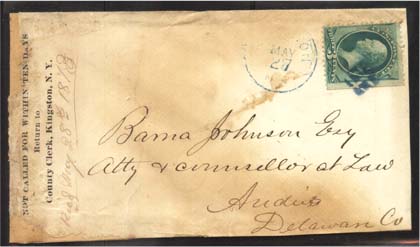 NOT CALLED FOR WITHIN TEN DAYS
Return to
County Clerk, Kingston, N. Y.
28th 1873
MAY
27
Bama Johnson Esq
Atty & counsellor at Law
Andes
Delawan Co